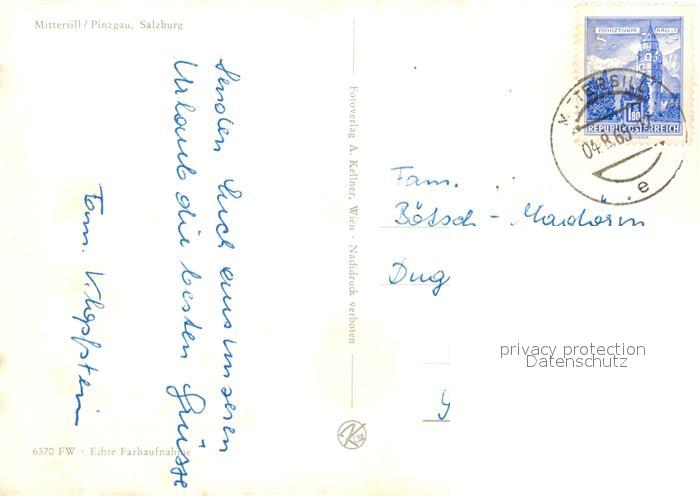 Mittersill / Pinzgau, Salzburg
Senden Euch aus unseren
Urlaub die besten Grüsse
Fam. Klopfstein
6370 FW · Echte Farbaufnahme
Fotoverlag A. Kellner, Wien · Nachdruck verboten
MÜNZTURM HALL i.T.
1.80
REPUBLIK ÖSTERREICH
MITTERSILL
04.8.65
e
Fam.
Bötsch -
Dug
privacy protection
Datenschutz